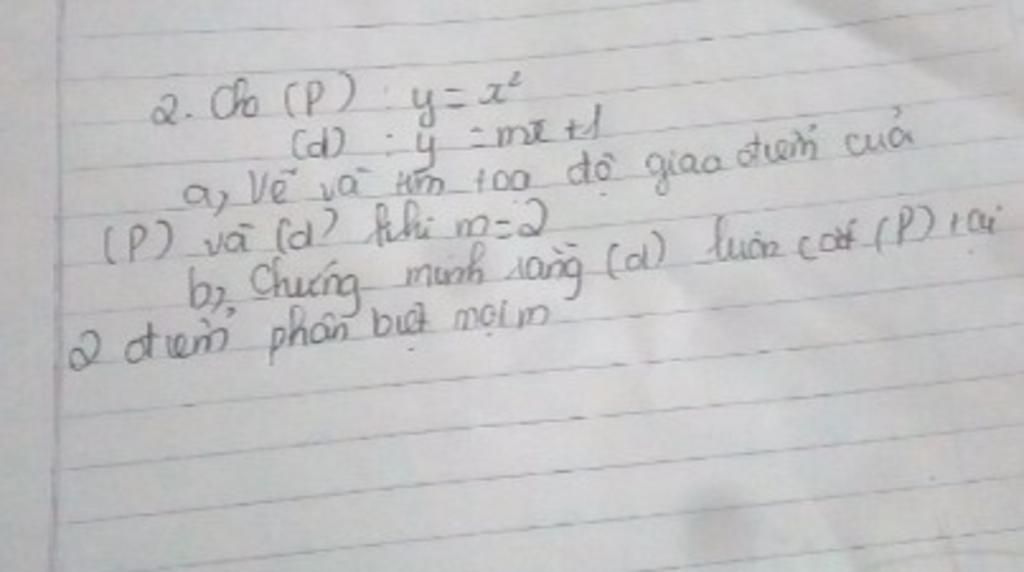 2. Cho (P) : y = x²
(d) : y = mx + 1
a, Vẽ và tìm toạ độ giao điểm của
(P) và (d) khi m = 2
b, Chứng minh rằng (d) luôn cắt (P) tại
2 điểm phân biệt mọi m